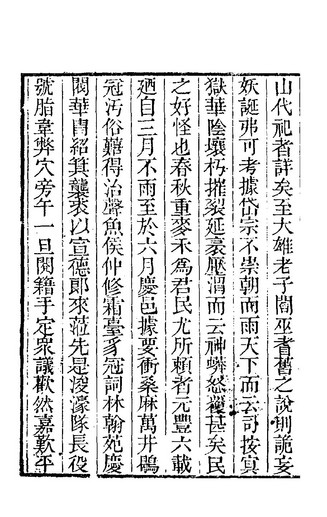 山代祀者詳矣至大雄老子閻巫者舊之說則詭妄
妖誕弗可考據岱宗不崇朝而雨天下而云司按冥
獄華陰壤朽摧裂延豪壓渭而云神蟒怒穰甚矣民
之好怪也春秋重麥禾為君民尤所賴者元豐六載
廼自三月不雨至於六月慶邑據要衝桑麻萬井鴟
冠汚俗難得治聲魚侯仲修霜臺豸冠詞林翰苑慶
閥華冑紹箕襲裘以宣德郎來蒞先是浚濠隊長役
號脂韋弊穴旁午一旦閱籍手定衆議歡然嘉歎平